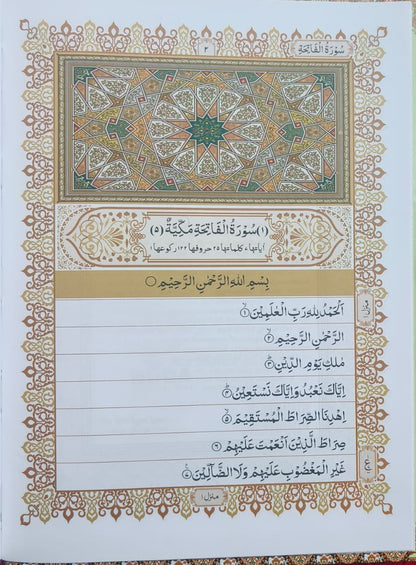 سُوْرَةُ الْفَاتِحَة
٢
﴿١﴾ سُوْرَةُ الْفَاتِحَةِ مَكِّيَّةٌ ﴿٥﴾
اٰیاتها ٧ كلماتها ٢٥ حروفها ١٢٣ ركوعها ١
بِسْمِ اللّٰهِ الرَّحْمٰنِ الرَّحِيْمِ ○
اَلْحَمْدُ لِلّٰهِ رَبِّ الْعٰلَمِيْنَ ۙ﴿١﴾
الرَّحْمٰنِ الرَّحِيْمِ ۙ﴿٢﴾
مٰلِكِ يَوْمِ الدِّيْنِ ؕ﴿٣﴾
اِيَّاكَ نَعْبُدُ وَاِيَّاكَ نَسْتَعِيْنُ ؕ﴿٤﴾
اِهْدِنَا الصِّرَاطَ الْمُسْتَقِيْمَ ۙ﴿٥﴾
صِرَاطَ الَّذِيْنَ اَنْعَمْتَ عَلَيْهِمْ ۙ﴿٦﴾
غَيْرِ الْمَغْضُوْبِ عَلَيْهِمْ وَلَا الضَّآلِّيْنَ ؑ﴿٧﴾
منزل ١
منزل ١